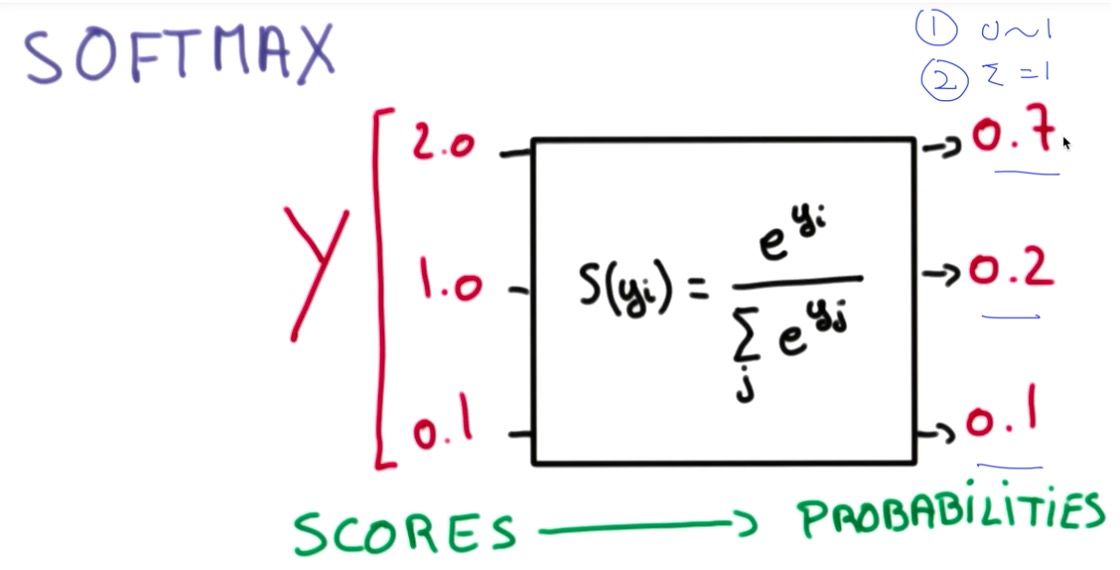 SOFTMAX
① 0~1
② Σ =1
Y
2.0
1.0
0.1
S(yi) = e^yi / Σj e^yj
0.7
0.2
0.1
SCORES → PROBABILITIES